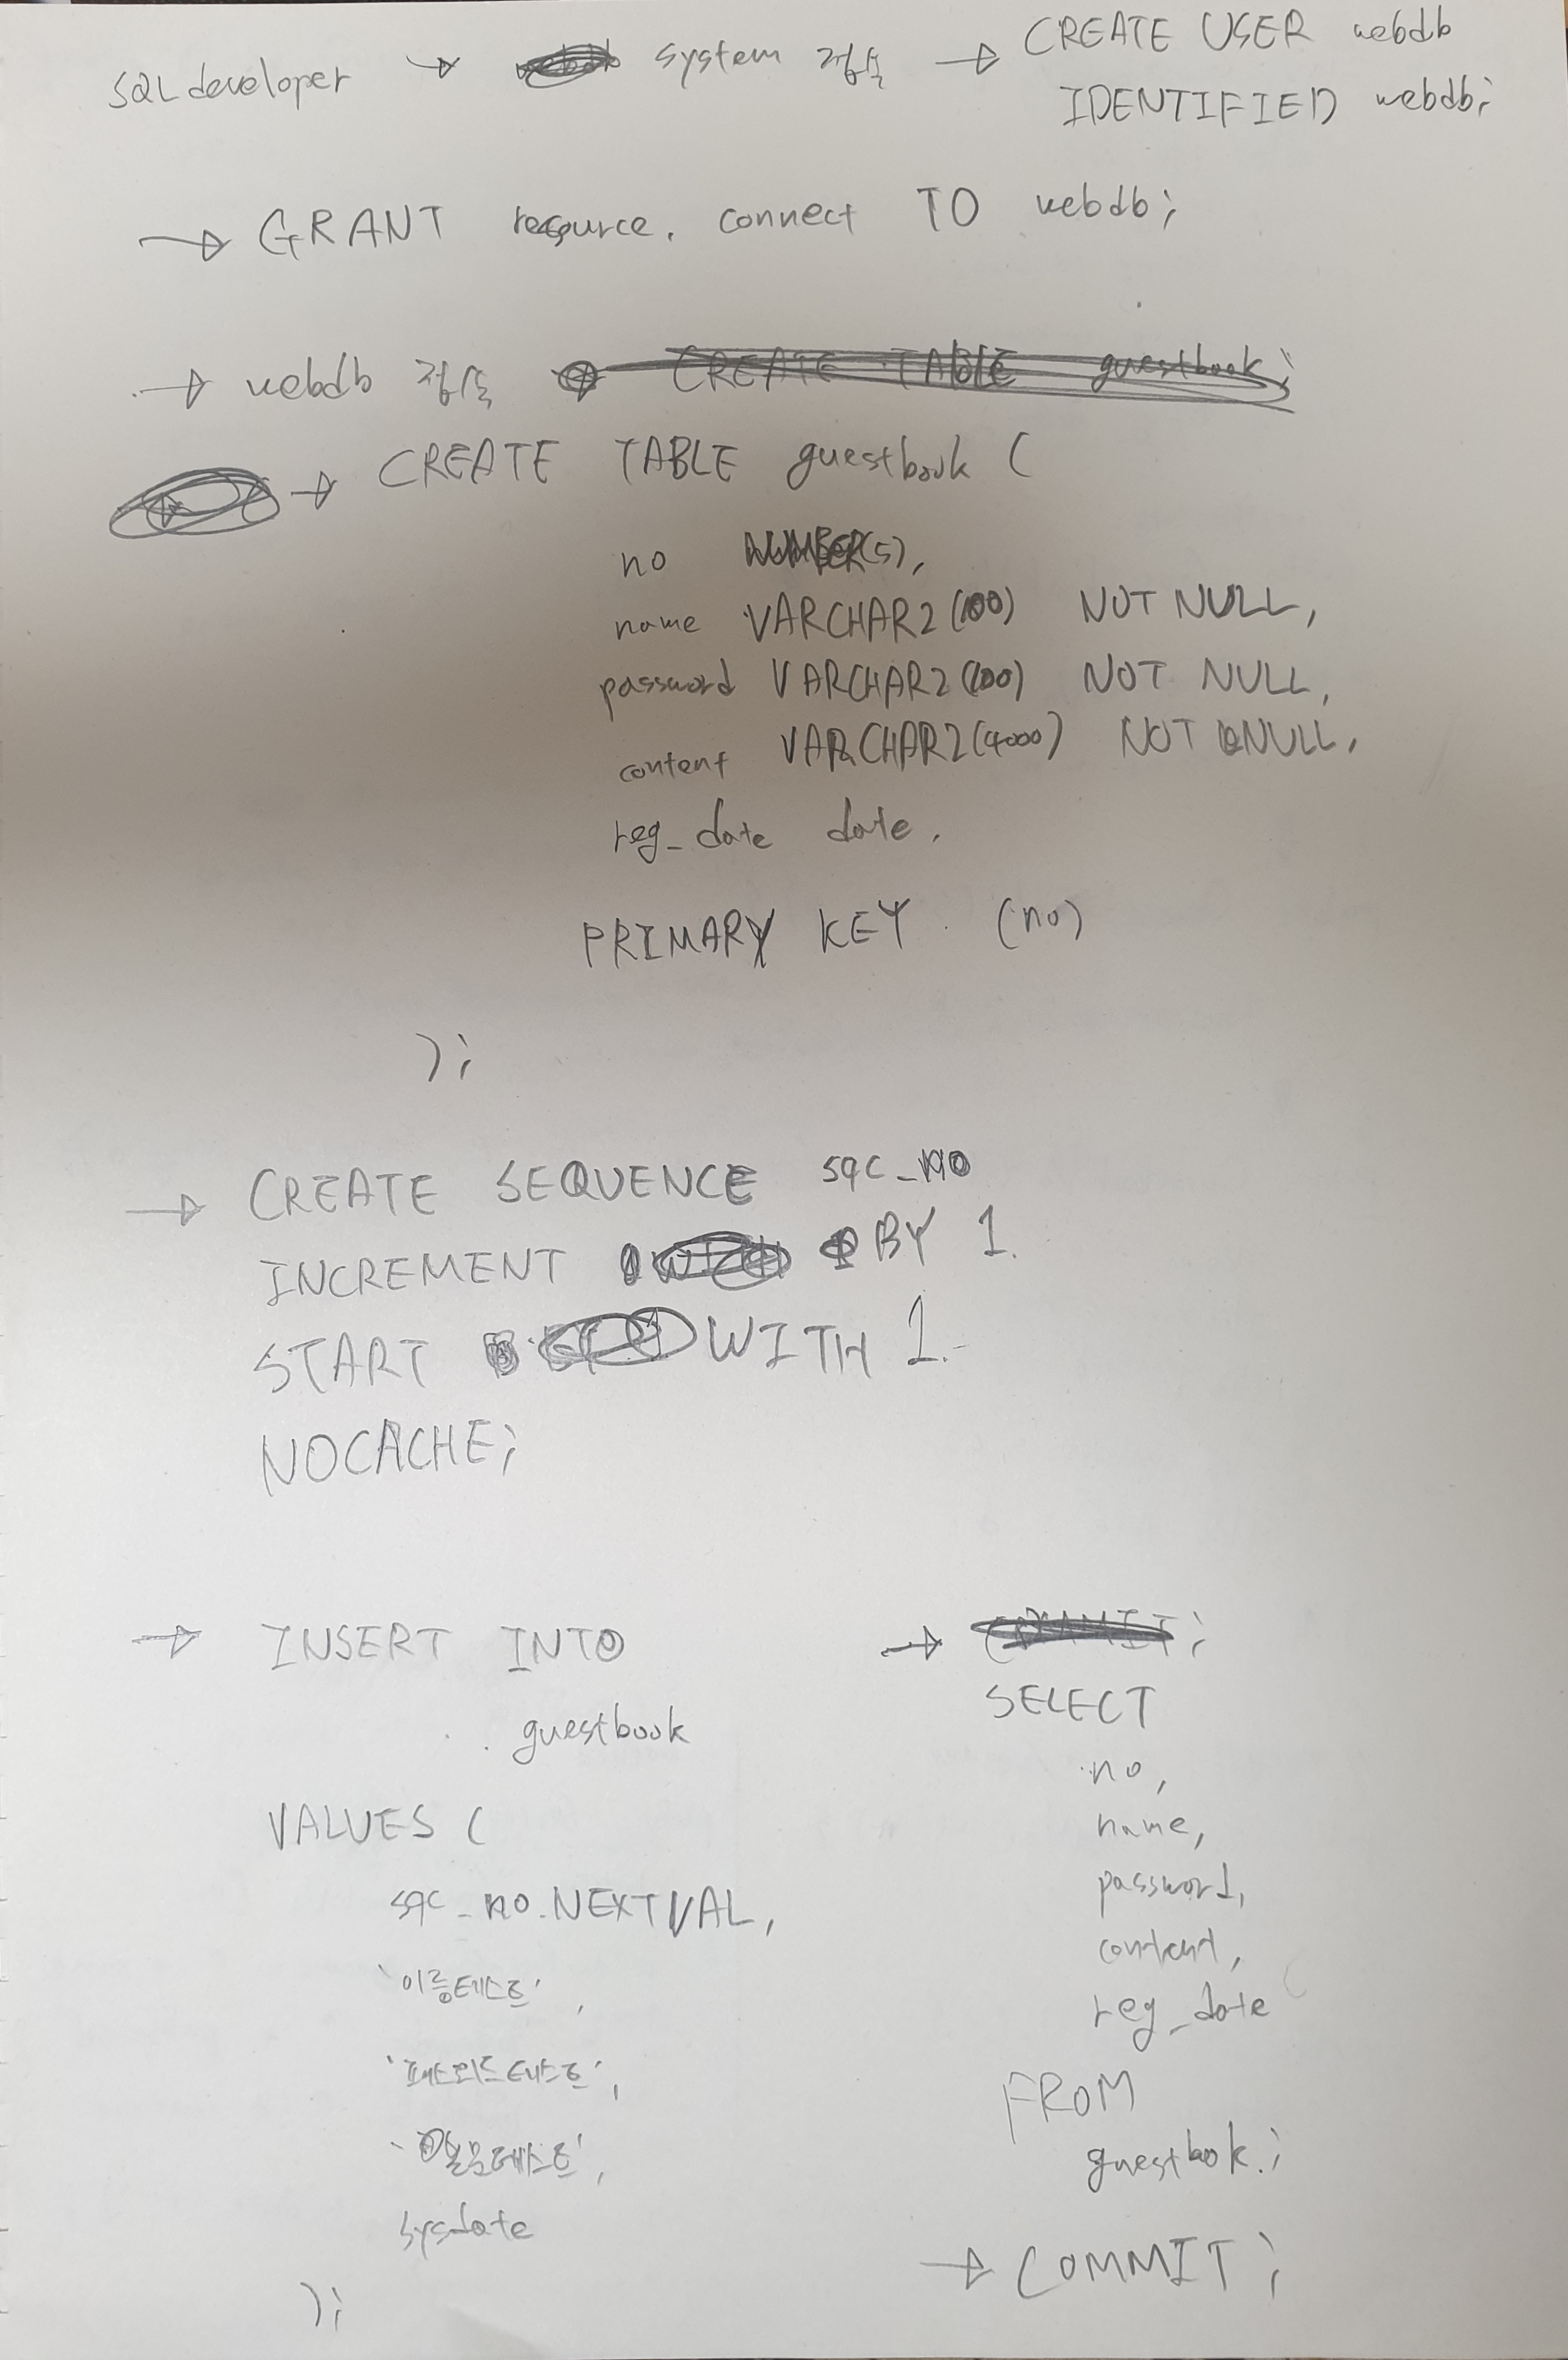 SQL developer → system 접속 → CREATE USER webdb
IDENTIFIED webdb;
→ GRANT resource, connect TO webdb;
→ webdb 접속
→ CREATE TABLE guestbook (
no NUMBER(5),
name VARCHAR2(100) NOT NULL,
password VARCHAR2(100) NOT NULL,
content VARCHAR2(4000) NOT NULL,
reg_date date,
PRIMARY KEY (no)
);
→ CREATE SEQUENCE sqc_no
INCREMENT BY 1
START WITH 1
NOCACHE;
→ INSERT INTO
guestbook
VALUES (
sqc_no.NEXTVAL,
'이름테스트',
'패스워드테스트',
'본문테스트',
sysdate
);
→ ;
SELECT
no,
name,
password,
content,
reg_date
FROM
guestbook;
→ COMMIT;